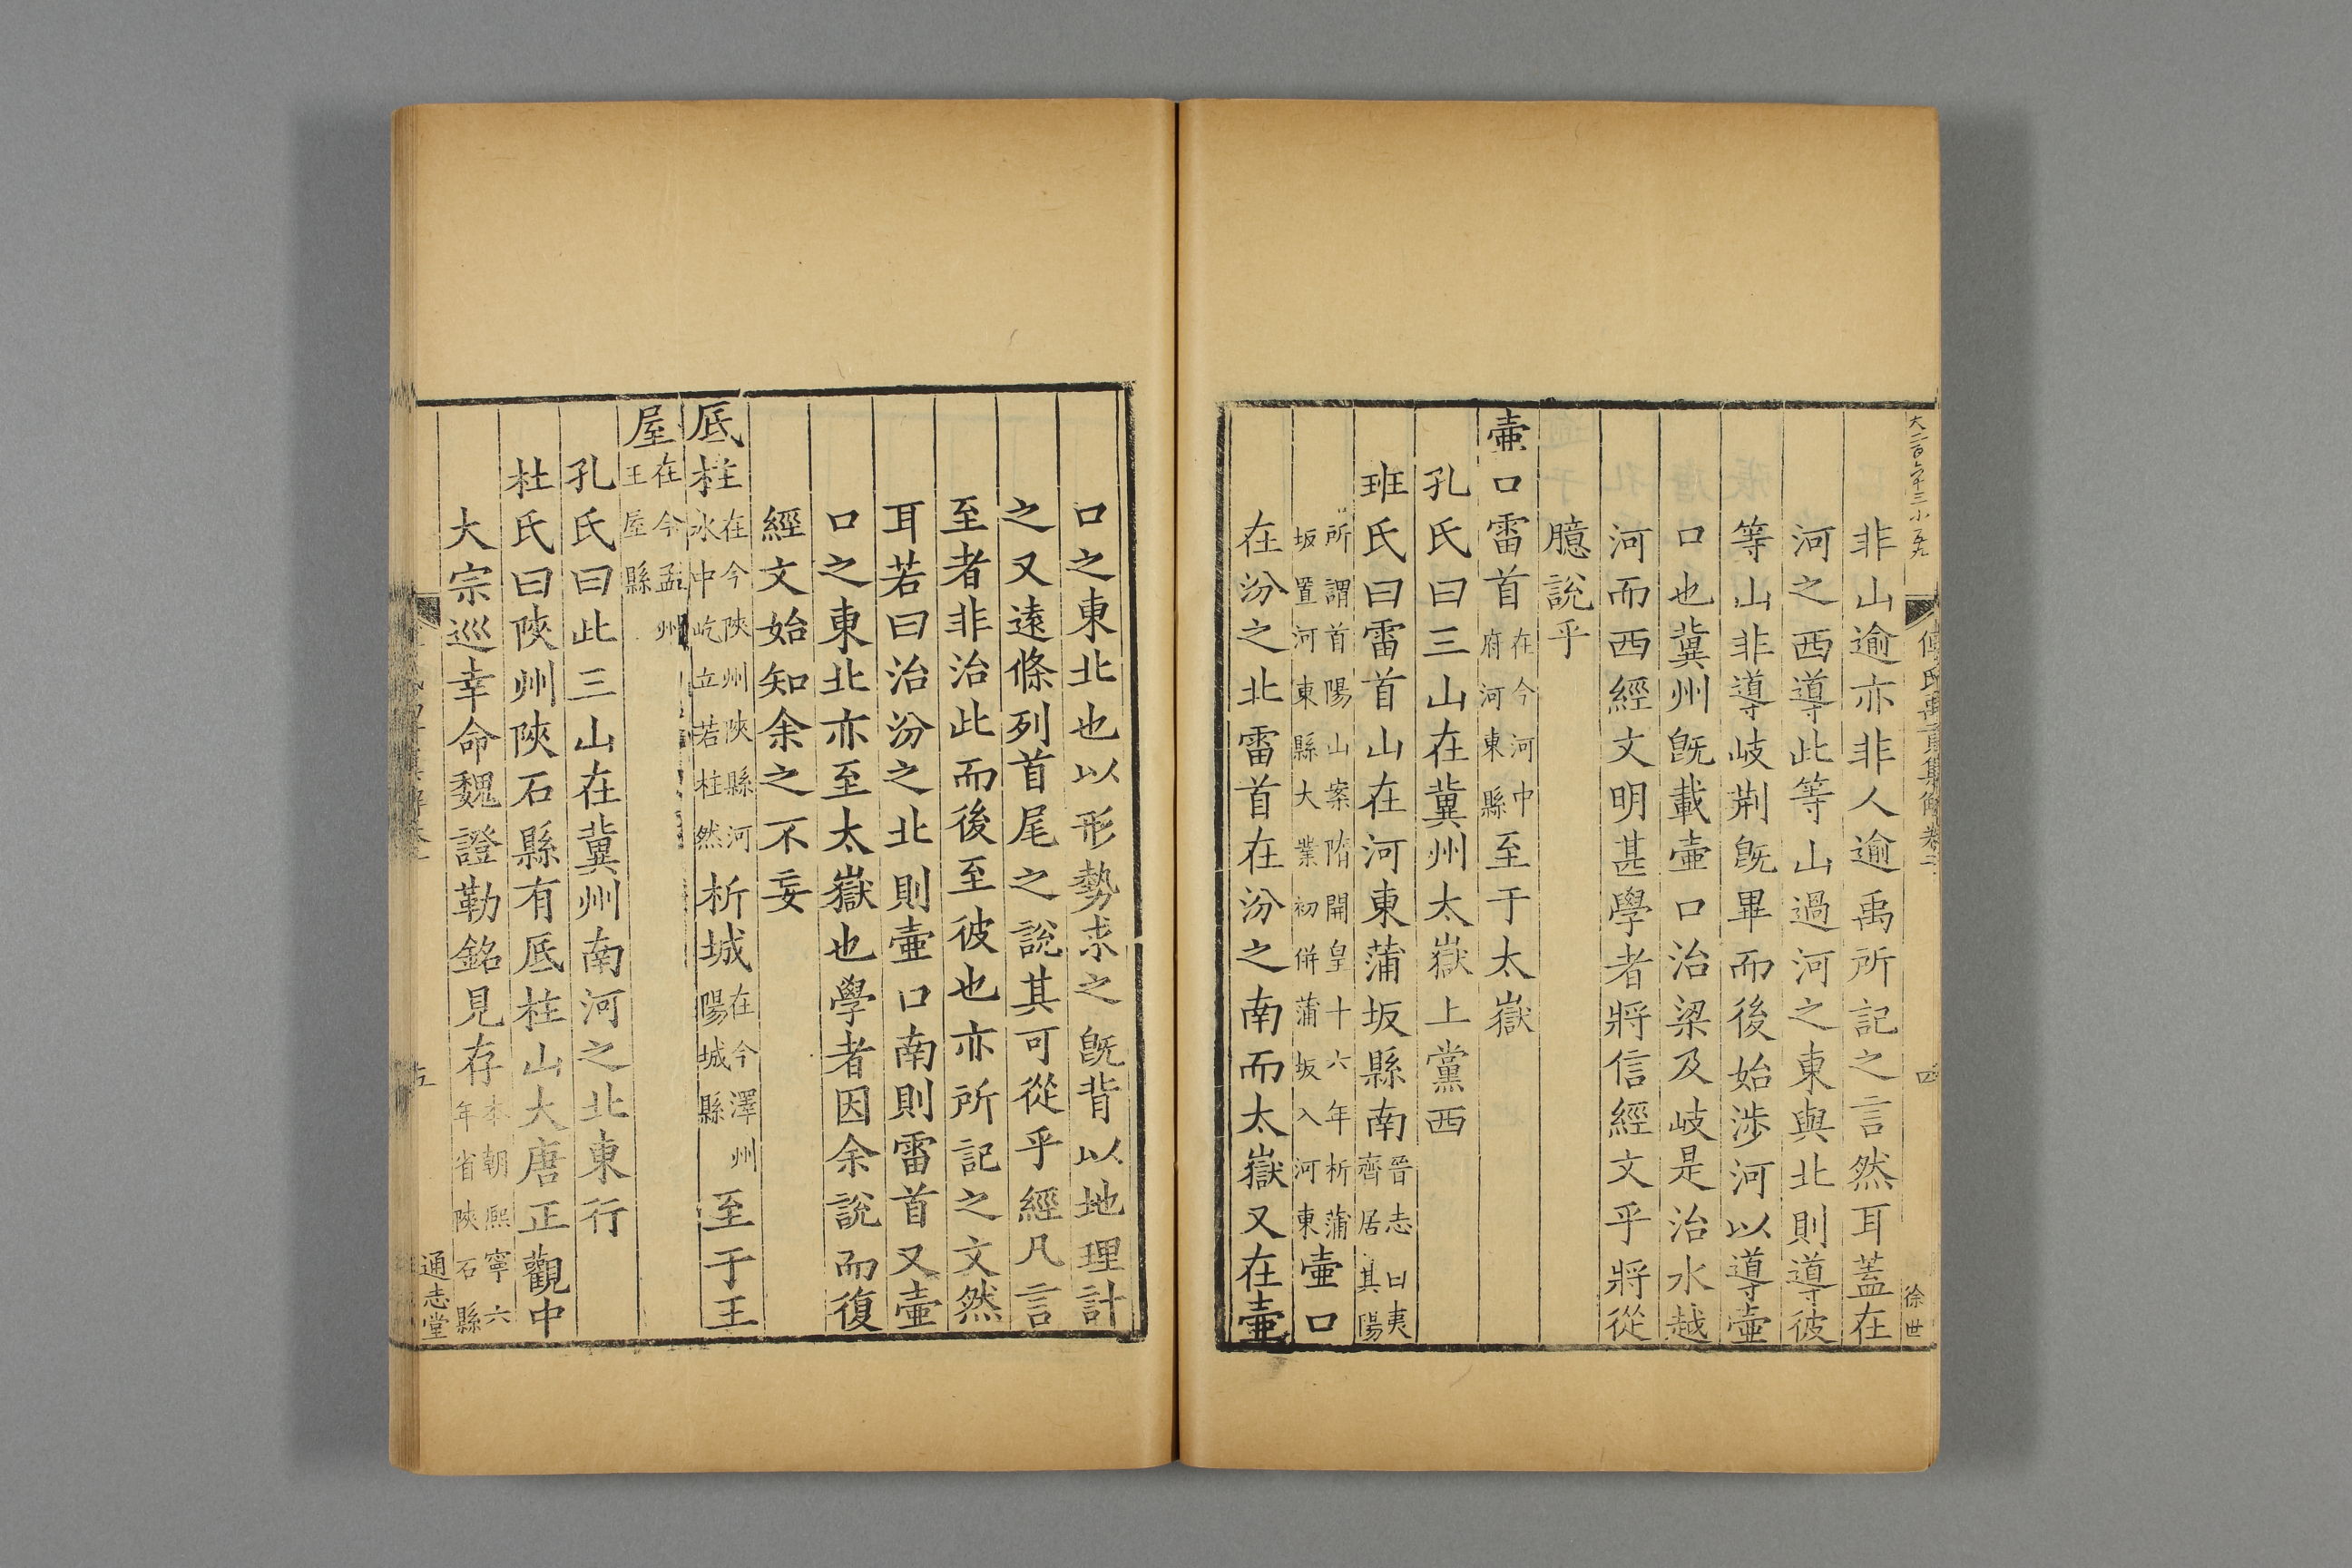 傅氏禹貢集解卷二
四
徐世
非山逾亦非人逾禹所記之言然耳蓋在
河之西導此等山過河之東與北則導彼
等山非導岐荆旣畢而後始涉河以導壷
口也冀州旣載壷口治梁及岐是治水越
河而西經文明甚學者將信經文乎將從
臆説乎
壷口雷首在今河中府河東縣至于太嶽
孔氏曰三山在冀州太嶽上黨西
班氏曰雷首山在河東蒲坂縣南晉志曰夷齊居其陽
所謂首陽山案隋開皇十六年析蒲坂置河東縣大業初併蒲坂入河東壷口
在汾之北雷首在汾之南而太嶽又在壷
口之東北也以形勢求之旣背以地理計
之又遠條列首尾之說其可從乎經凡言
至者非治此而後至彼也亦所記之文然
耳若曰治汾之北則壷口南則雷首又壷
口之東北亦至太嶽也學者因余說而復
經文始知余之不妄
厎柱在今陝州陝縣河水中屹立若柱然析城在今澤州陽城縣至于王
屋在今孟州王屋縣
孔氏曰此三山在冀州南河之北東行
杜氏曰陝州陝石縣有厎柱山大唐正觀中
大宗巡幸命魏證勒銘見存本朝熈寧六年省陝石縣
五
通志堂